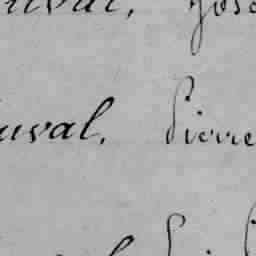 uval, Jos
uval, Pierre